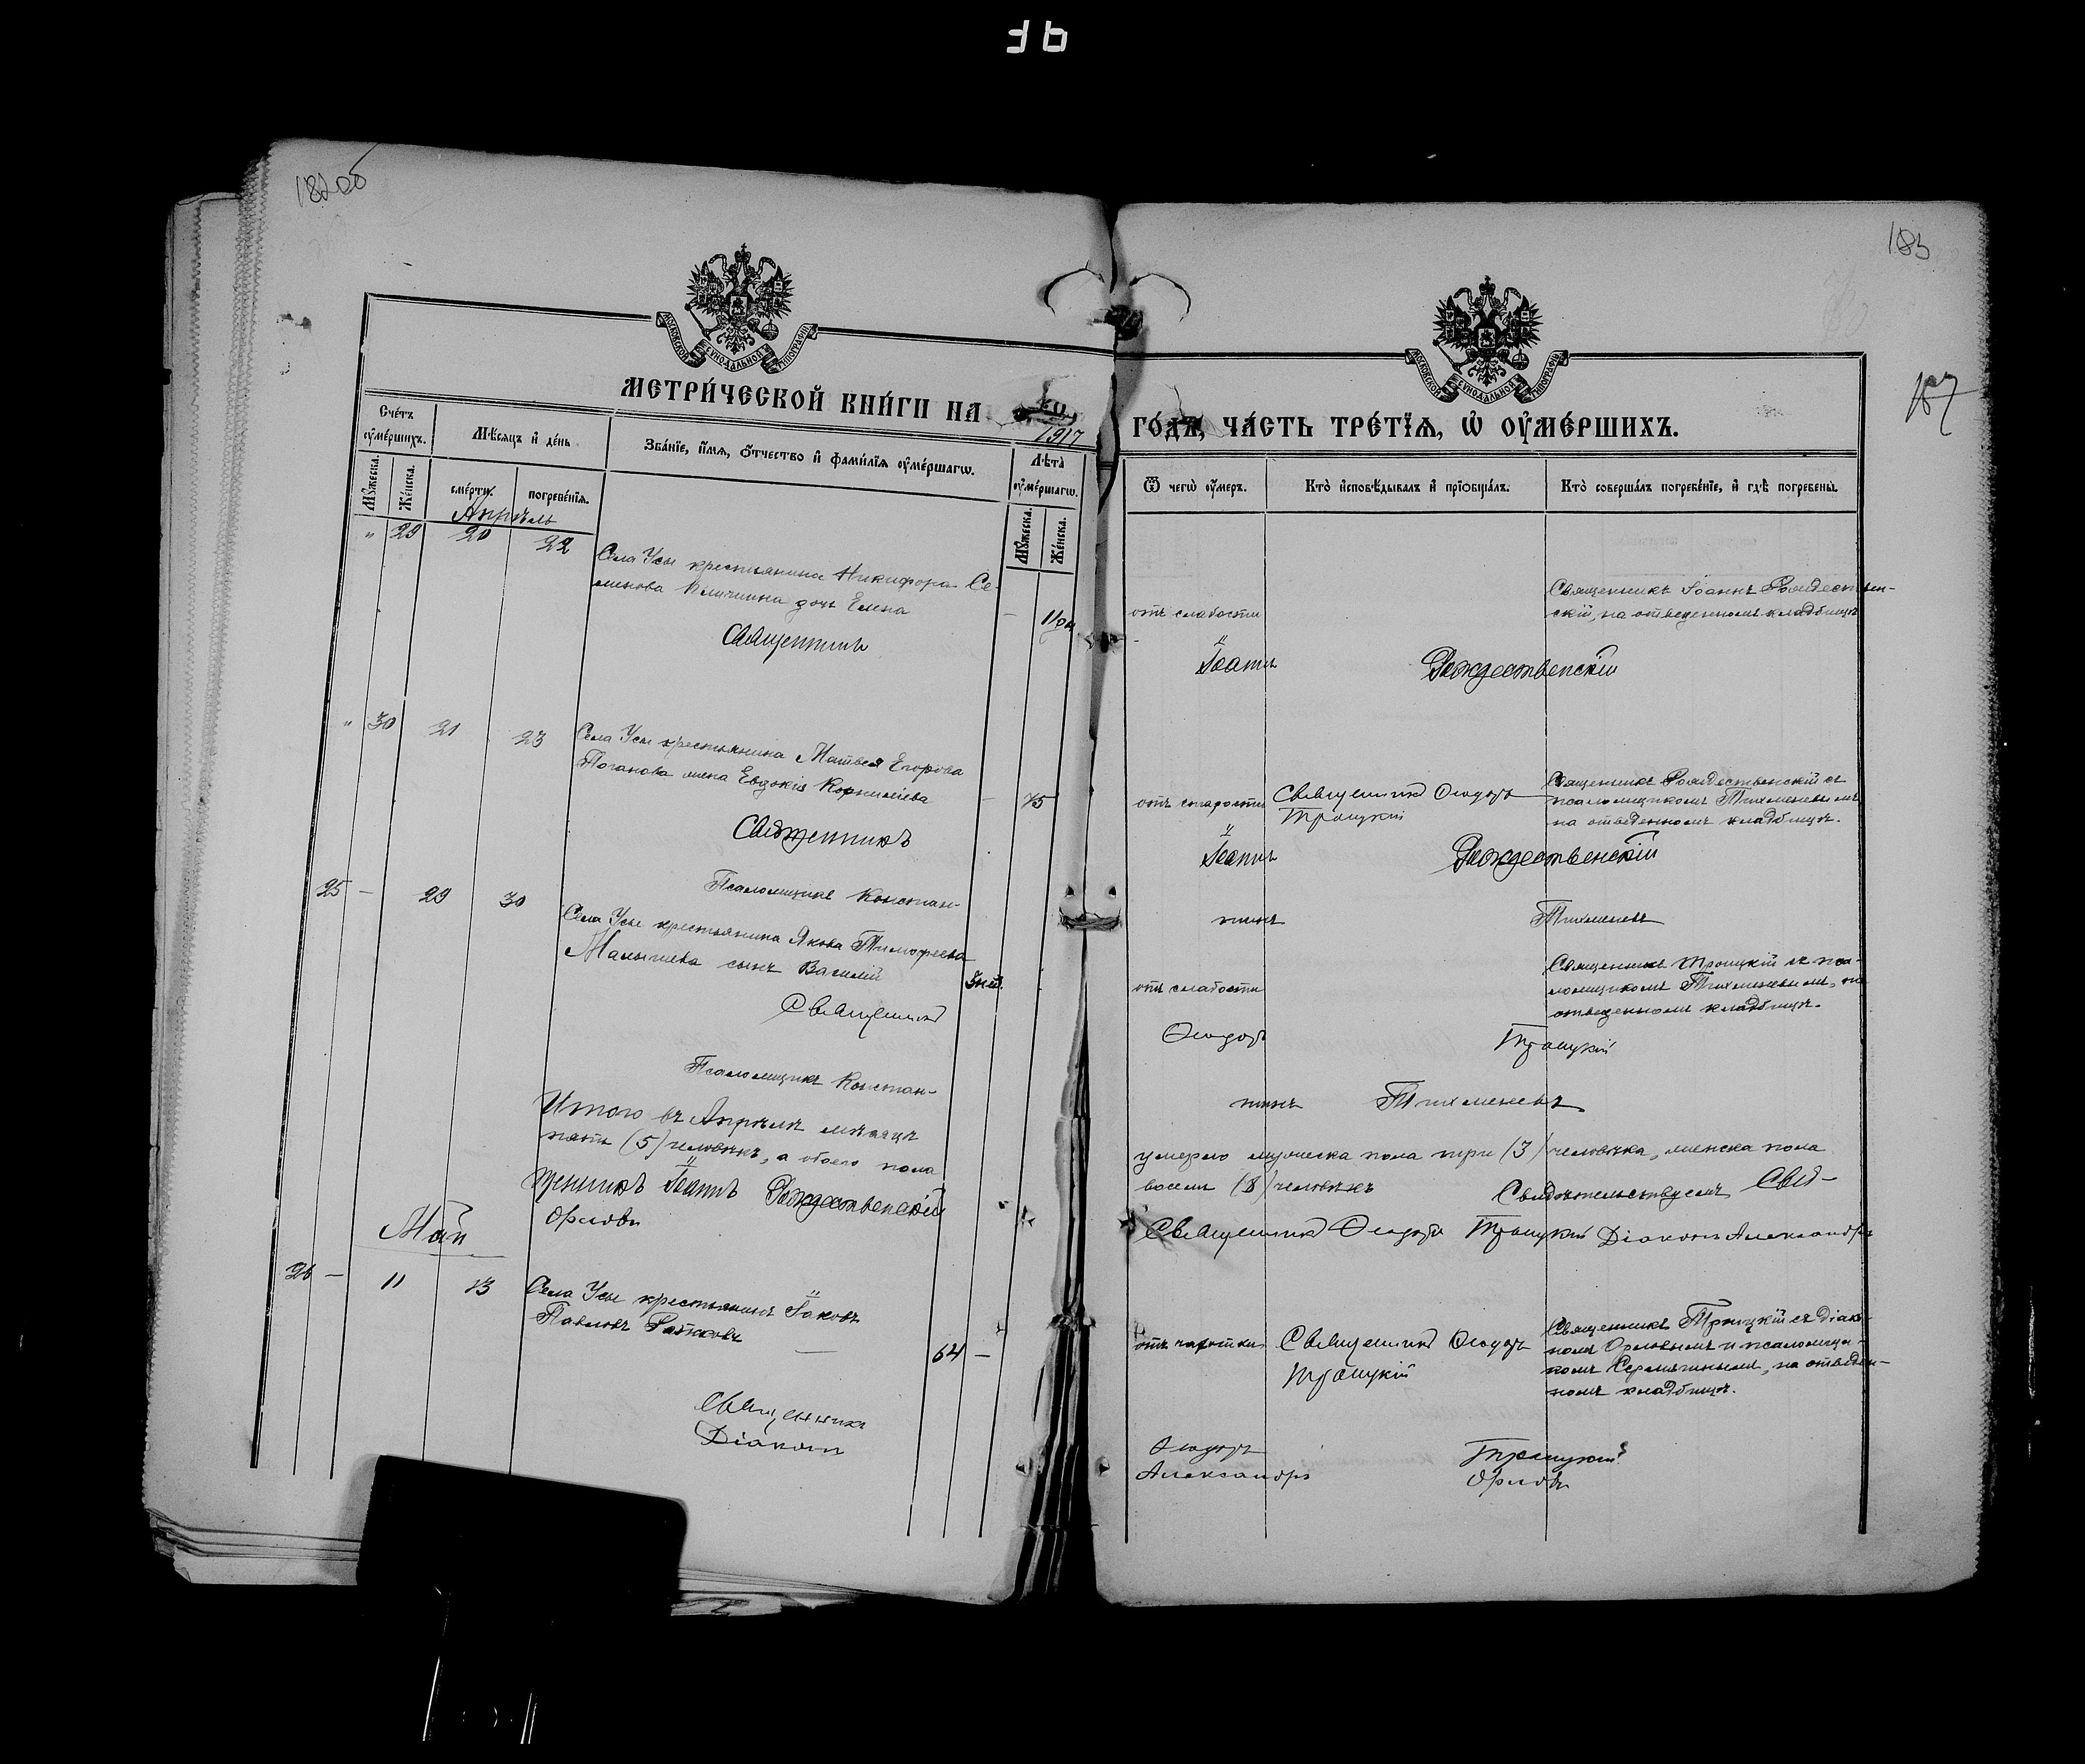 182об
183
187
МОСКОВСКОЙ СѴНОДАЛЬНОЙ ТИПОГРАФІИ
МОСКОВСКОЙ СѴНОДАЛЬНОЙ ТИПОГРАФІИ
МЕТРИ́ЧЕСКОЙ КНИ́ГИ НА 1917
ГО́ДЪ, ЧА́СТЬ ТРЕ́ТІѦ, Ѡ҆ ОУ҆МЕ́РШИХЪ.
Сче́тъ оу҆ме́ршихъ.
Мѣ́сяцъ и҆ де́нь
Зва́нїе, и҆́мя, ѻ҆́тчество и҆ фами́лїя оу҆ме́ршагѡ.
Лѣ́та оу҆ме́ршагѡ.
Мꙋ́жеска.
Же́нска.
сме́рти.
погребе́нїя.
Мꙋ́жеска.
Же́нска.
Ѿ чегѡ̀ оу҆́меръ.
Кто̀ и҆сповѣ́дывалъ и҆ прїѡбща́лъ.
Кто̀ соверша́лъ погребе́нїе, и҆ гдѣ̀ погребены̀.
Апрѣль
" 29 20 22
Села Усы крестьянина Никифора Се-
менова дочь Елена
отъ слабости
Священникъ Іоаннъ Рождествен-
скій, на отведенномъ кладбищѣ
Священникъ Іоаннъ Рождественскій
" 30 21 23
Села Усы крестьянина Матвея Егорова
Поганова жена Евдокія Корниліева
75
отъ старости
Священникъ Ѳеодоръ
Троицкій
Священникъ Рождественскій съ
псаломщикомъ Тихменевымъ
на отведенномъ кладбищѣ.
Священникъ Іоаннъ Рождественскій
Псаломщикъ Констан-
тинъ Тихменевъ
25 — 29 30
Села Усы крестьянина Якова Тимофеева
Малышева сынъ Василій
отъ слабости
Священникъ Троицкій съ пса-
ломщикомъ Тихменевымъ, на
отведенномъ кладбищѣ.
Священникъ Ѳеодоръ Троицкій
Псаломщикъ Констан-
тинъ Тихменевъ
Итого въ Апрѣлѣ мѣсяцѣ умерло мужеска пола три (3) человѣка, женска пола
пять (5) человѣкъ, а обоего пола восемь (8) человѣкъ Свидѣтельствуемъ Свя-
щенникъ Іоаннъ Рождественскій Священникъ Ѳеодоръ Троицкій Діаконъ Александръ
Орловъ
Май
26 — 11 13
Села Усы крестьянинъ Іаковъ
Павловъ
64 —
отъ чахотки
Священникъ Ѳеодоръ
Троицкій
Священникъ Троицкій съ діако-
номъ Орловымъ и псаломщи-
комъ на отведен-
номъ кладбищѣ.
Священникъ Ѳеодоръ Троицкій
Діаконъ Александръ Орловъ